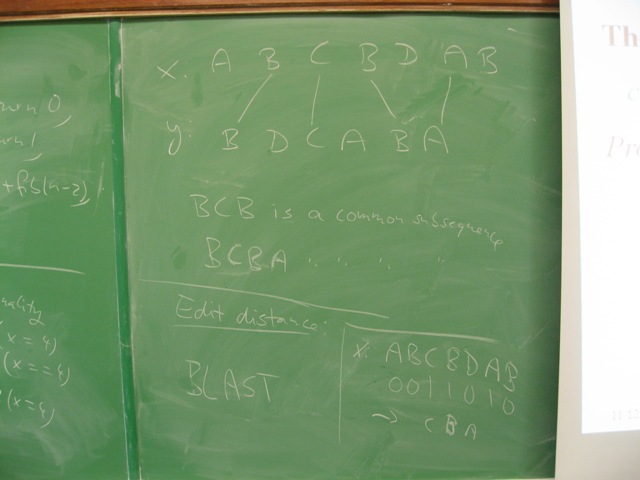 x: A B C B D A B
y: B D C A B A
BCB is a common subsequence
BCBA " " " "
Edit distance:
BLAST
x: ABCBDAB
0011010
→ CBA
0
1
+ fib(n-2)
x = 4)
(x == 4)
(x = 4)
Th
c
Pro